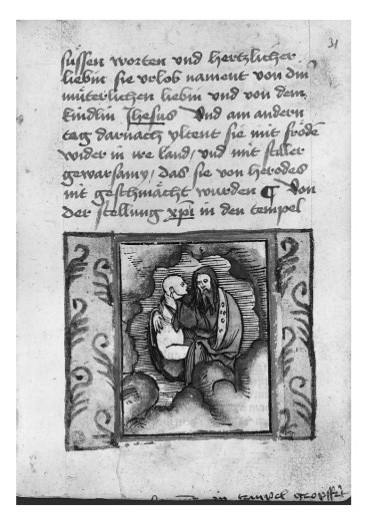 31
süssen worten vnd hertzlicher
liebin sie vrlob nament von din
müterlichen liebin vnd von dem
kindlin Jhesus Vnd am andern
tag darnach yltent sie mit fröde
wider in ire land / vnd mit stiller
gewarsamy / das sie von herodes
nit geschmächt wurden ¶ Von
der stellung xpi in den tempel
in tempel geopffrt